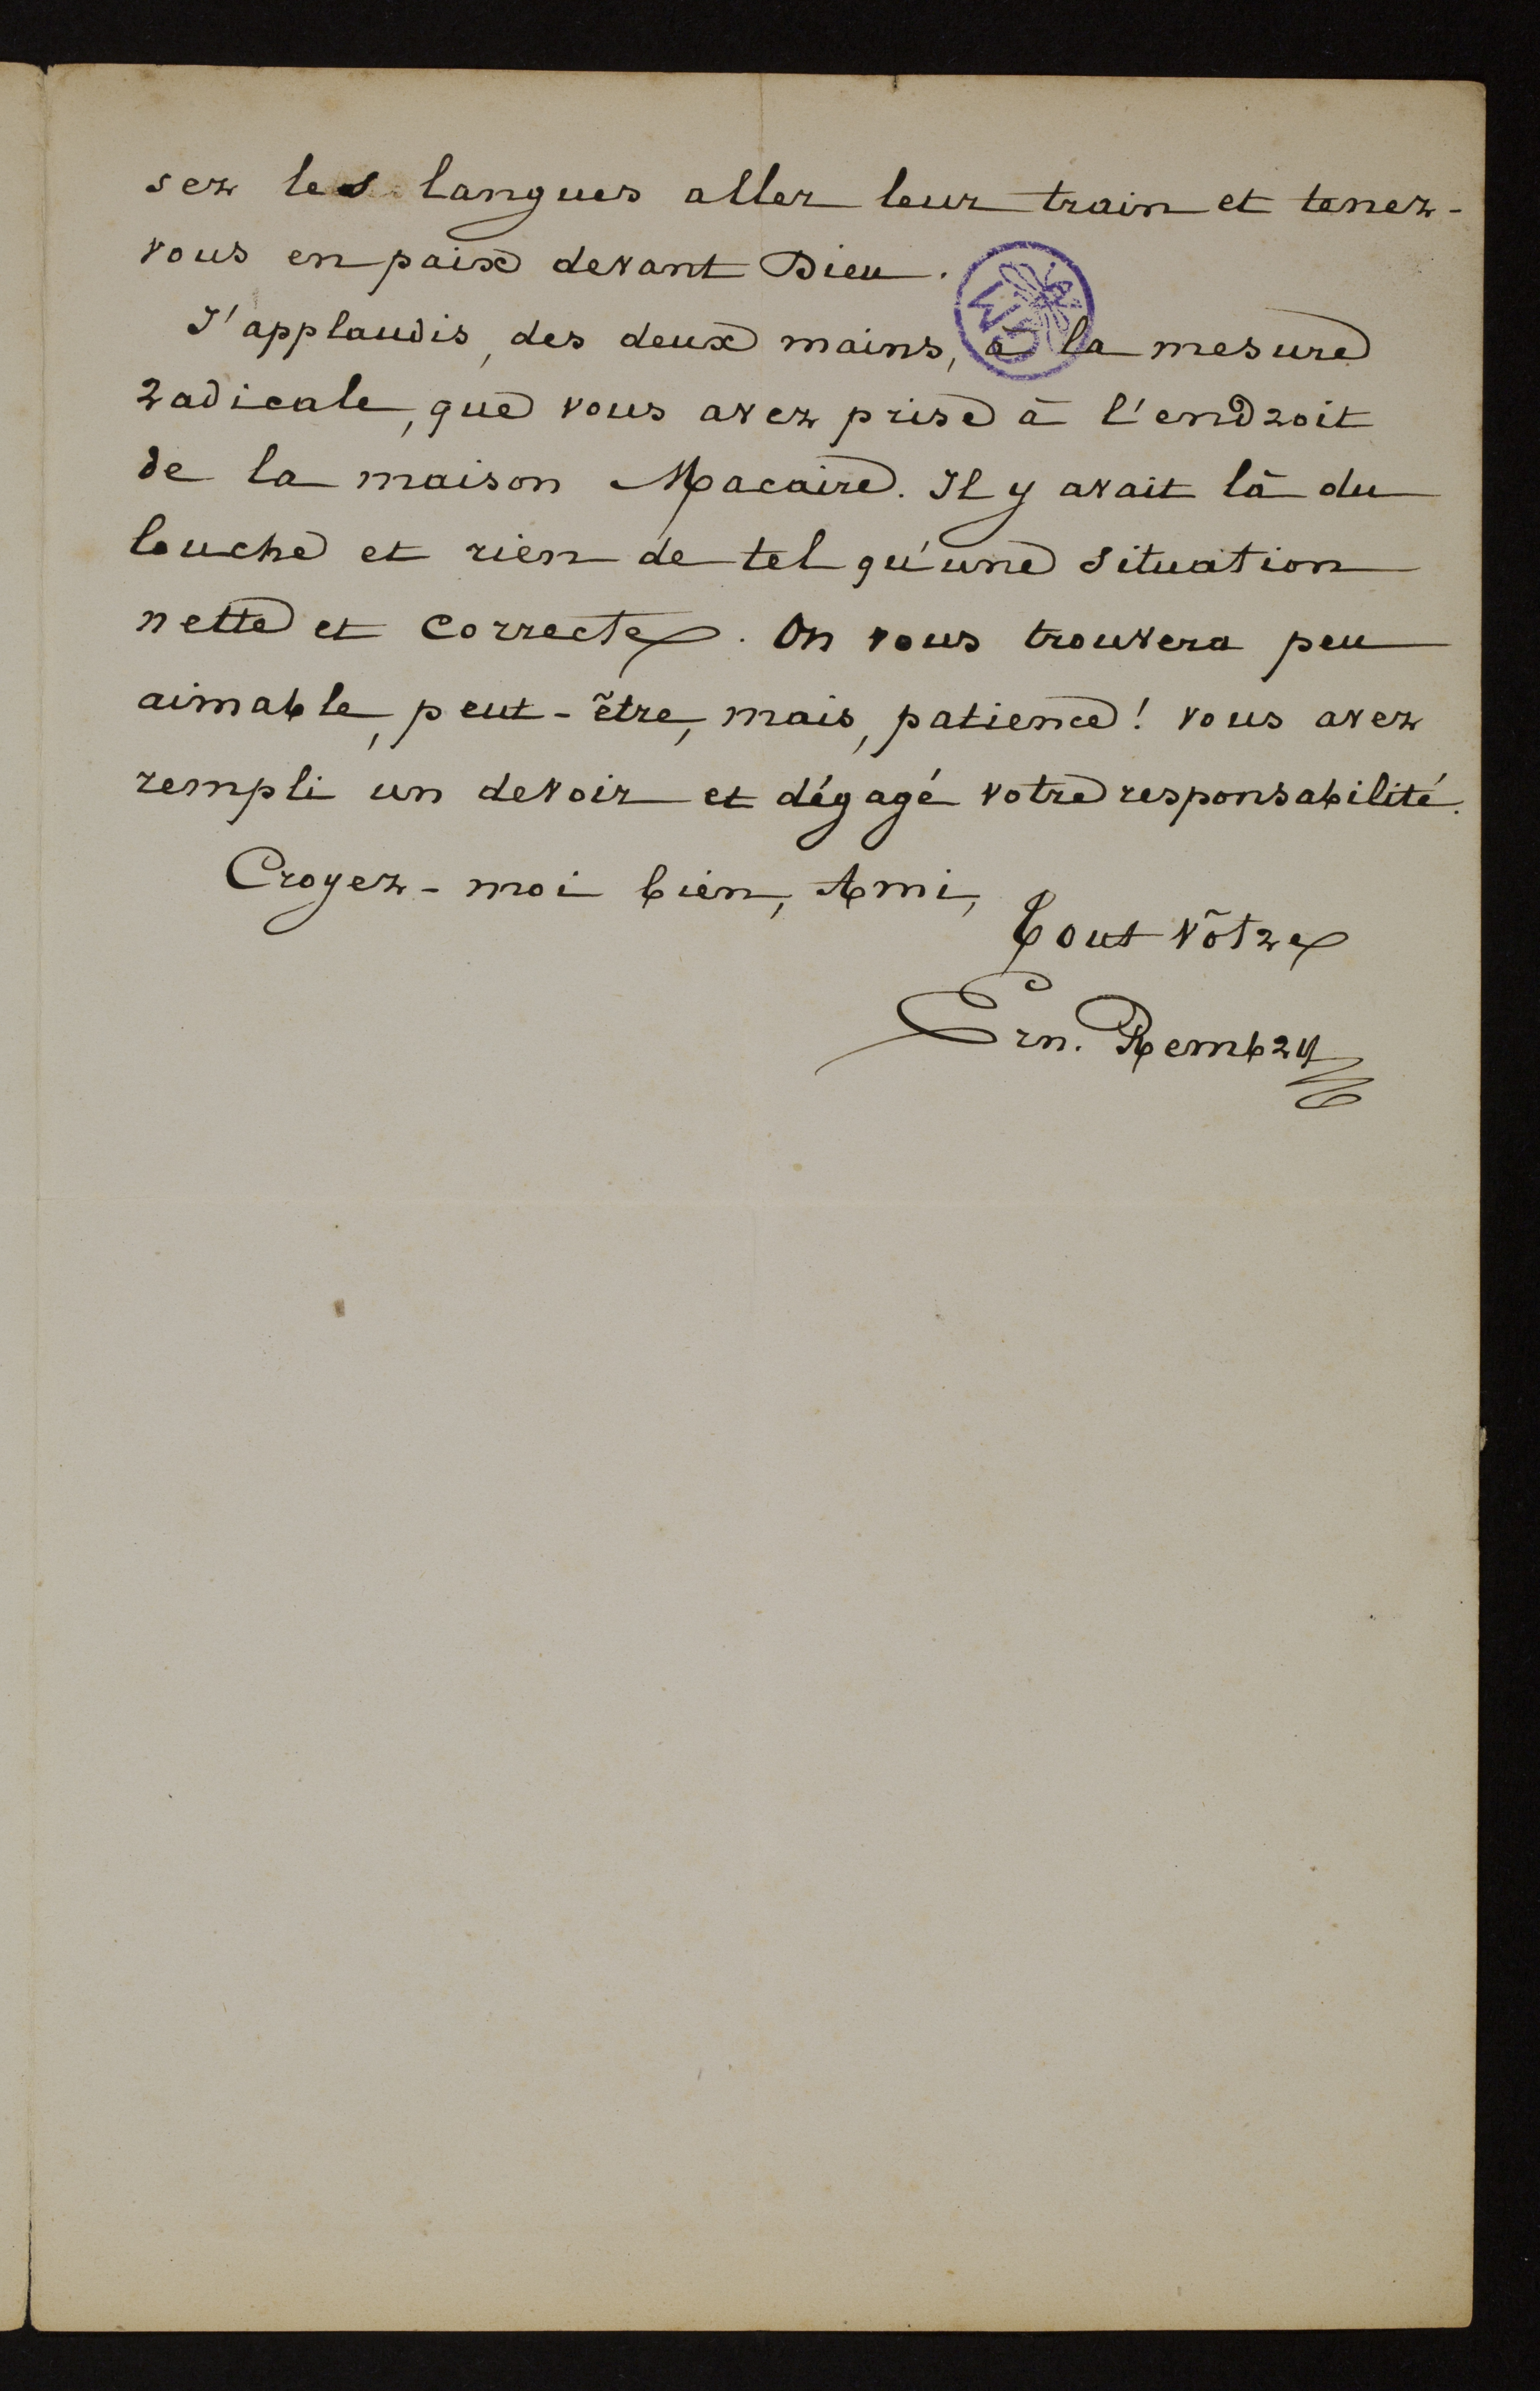 sez les langues aller leur train et tenez-
vous en paix devant Dieu.
J'applaudis, des deux mains, à la mesure
radicale, que vous avez prise à l'endroit
de la maison Macaire. Il y avait là du
louche et rien de tel qu'une situation
nette et correcte. On vous trouvera peu
aimable, peut-être, mais, patience! vous avez
rempli un devoir et dégagé votre responsabilité.
Croyez-moi bien, Ami,
Tout vôtre
Ern. Rembry